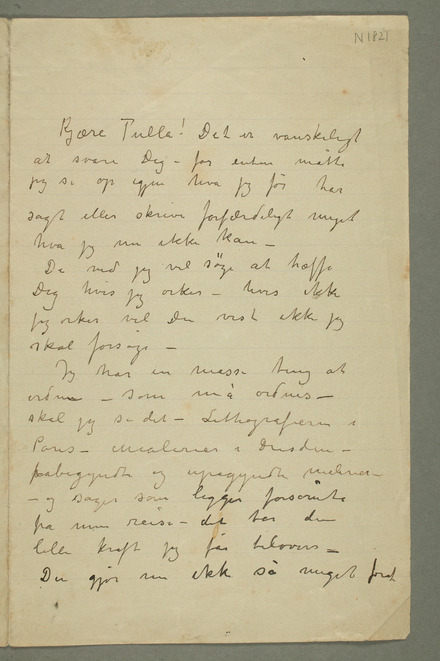 N 1821
Kjære Tulla! Det er vanskeligt
at svare Dig – for enten måtte
jeg si op igjen hva jeg før har
sagt eller skrive forfærdeligt meget
hva jeg nu ikke kan –
Du ved jeg vil søge at træffe
Dig hvis jeg orker – hvis ikke
jeg orker vil Du vist ikke jeg
skal forsøge –
Jeg har en masse ting at
ordne – som må ordnes –
skal jeg si det – Lithografierne i
Paris – malerier i Dresden –
påbegyndte og
– og sager som ligger forsømte
fra min reise – det tar den
lille kraft jeg får tilovers –
Du gjør nu ikke så meget for at